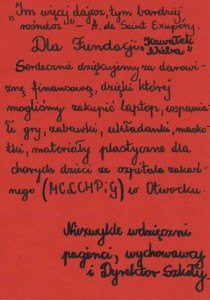 „Im więcej dajesz, tym bardziej
wzrastasz” – A. de Saint Exupéry.
Dla Fundacji „Kawałek
Nieba”
Serdecznie dziękujemy za darowi-
znę finansową, dzięki której
mogliśmy zakupić laptop, wspania-
łe gry, zabawki, układanki, maskot-
ki, materiały plastyczne dla
chorych dzieci ze szpitala zakaź-
nego (MCLCHPiG) w Otwocku.
Niezwykle wdzięczni
pacjenci, wychowawcy
i Dyrektor Szkoły.